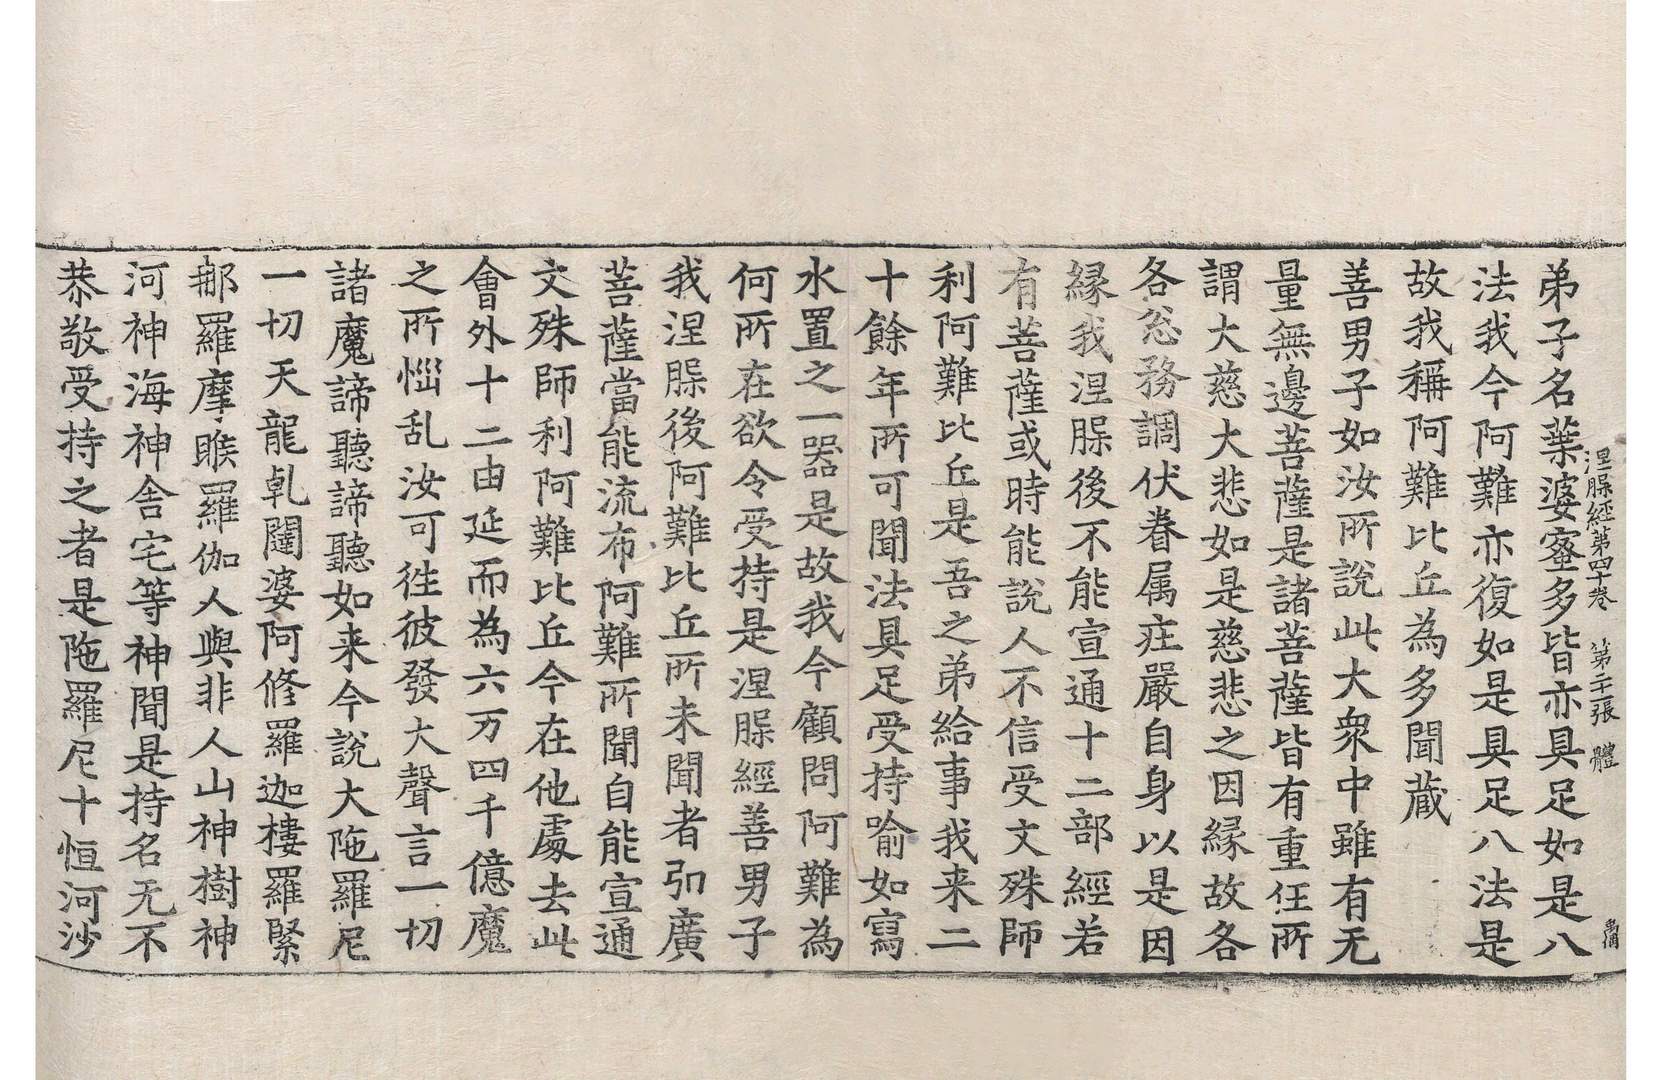 涅槃經第四十卷 第二十張 體
弟子名葉婆蜜多皆亦具足如是八
法我今阿難亦復如是具足八法是
故我稱阿難比丘為多聞蔵
善男子如汝所說此大衆中雖有无
量無邊菩薩是諸菩薩皆有重任所
謂大慈大悲如是慈悲之因縁故各
各忩務調伏眷属庄嚴自身以是因
縁我涅槃後不能宣通十二部經若
有菩薩或時能說人不信受文殊師
利阿難比丘是吾之弟給事我来二
十餘年所可聞法具足受持喻如寫
水置之一器是故我今顧問阿難為
何所在欲令受持是涅槃經善男子
我涅槃後阿難比丘所未聞者弘廣
菩薩當能流布阿難所聞自能宣通
文殊師利阿難比丘今在他處去此
會外十二由延而為六万四千億魔
之所惱乱汝可徃彼發大聲言一切
諸魔諦聽諦聽如来今說大陁羅尼
一切天龍乹闥婆阿修羅迦樓羅緊
那羅摩睺羅伽人與非人山神樹神
河神海神舎宅等神聞是持名无不
恭敬受持之者是陁羅尼十恒河沙